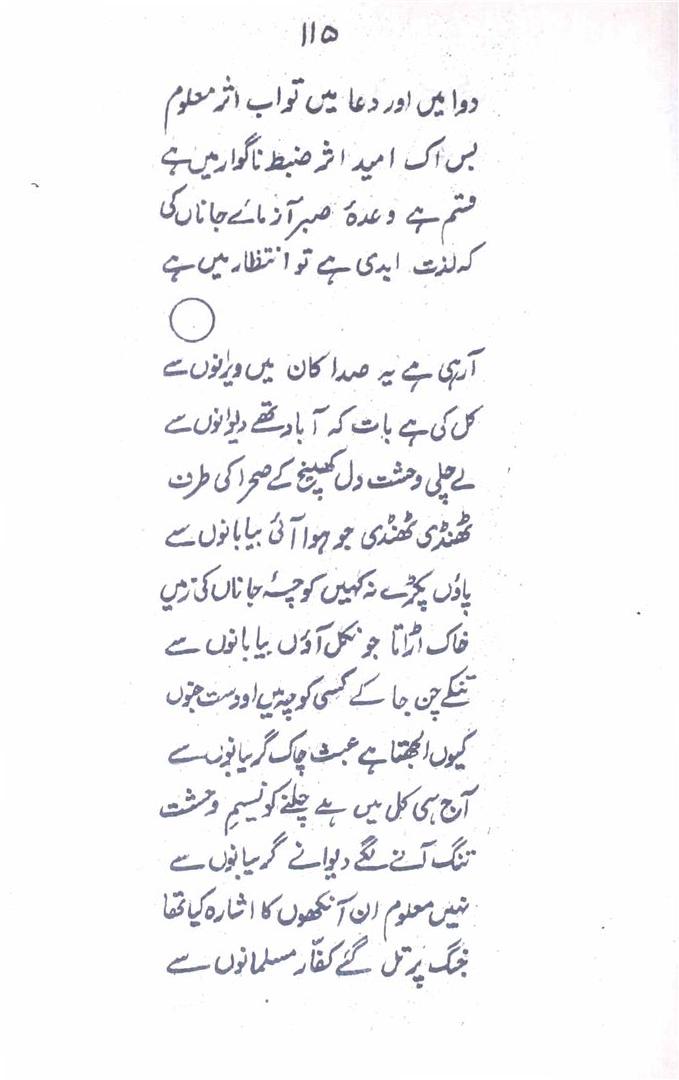 ۱۱۵
دوا میں اور دعا میں تو اب اثر معلوم
بس اک امید اثر ضبط ناگوار میں ہے
قسم ہے وعدۂ صبر آزمائے جاناں کی
کہ لذت ابدی ہے تو انتظار میں ہے
آرہی ہے یہ صدا کان میں ویرانوں سے
کل کی ہے بات کہ آباد تھے دیوانوں سے
لے چلی وحشت دل کھینچ کے صحرا کی طرف
ٹھنڈی ٹھنڈی جو ہوا آئی بیابانوں سے
پاؤں پکڑے نہ کہیں کوچۂ جاناں کی زمیں
خاک اڑاتا جو نکل آؤں بیابانوں سے
تنکے چن جا کے کسی کوچہ میں او دست جنوں
کیوں الجھتا ہے عبث چاک گریبانوں سے
آج ہی کل میں ہے چلنے کو نسیمِ وحشت
تنگ آنے لگے دیوانے گریبانوں سے
نہیں معلوم ان آنکھوں کا اشارہ کیا تھا
جنگ پر تل گئے کفّار مسلمانوں سے